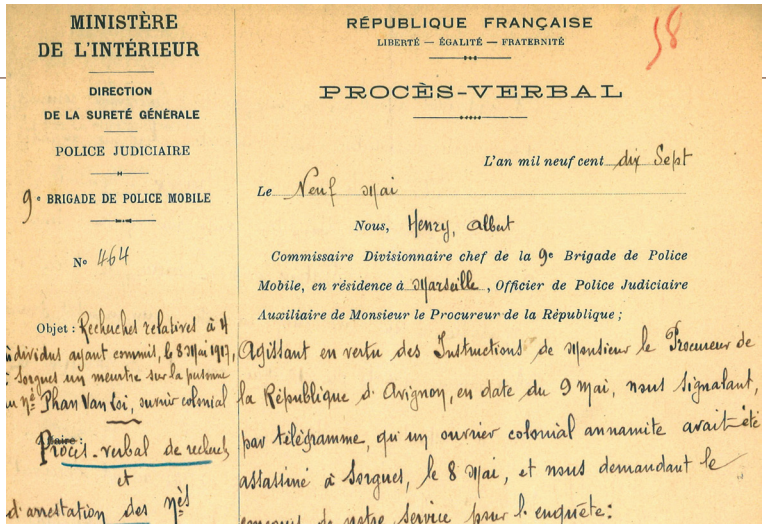 MINISTÈRE
DE L'INTÉRIEUR
DIRECTION
DE LA SURETÉ GÉNÉRALE
POLICE JUDICIAIRE
9e BRIGADE DE POLICE MOBILE
No 464
Objet : Recherches relatives à 4
individus ayant commis, le 8 Mai 1917,
à Sorgues un meurtre sur la personne
du né Phan Van Loi, ouvrier colonial
Procès-verbal de recherches
et
d'arrestation des nés
RÉPUBLIQUE FRANÇAISE
LIBERTÉ — ÉGALITÉ — FRATERNITÉ
58
PROCÈS-VERBAL
L'an mil neuf cent dix Sept
Le Neuf Mai
Nous, Henry, Albert
Commissaire Divisionnaire chef de la 9e Brigade de Police
Mobile, en résidence à Marseille, Officier de Police Judiciaire
Auxiliaire de Monsieur le Procureur de la République ;
Agissant en vertu des Instructions de Monsieur le Procureur de
la République d'Avignon, en date du 9 Mai, nous signalant,
par télégramme, qu'un ouvrier colonial annamite avait été
assassiné à Sorgues, le 8 Mai, et nous demandant le
concours de notre Service pour l'enquête: